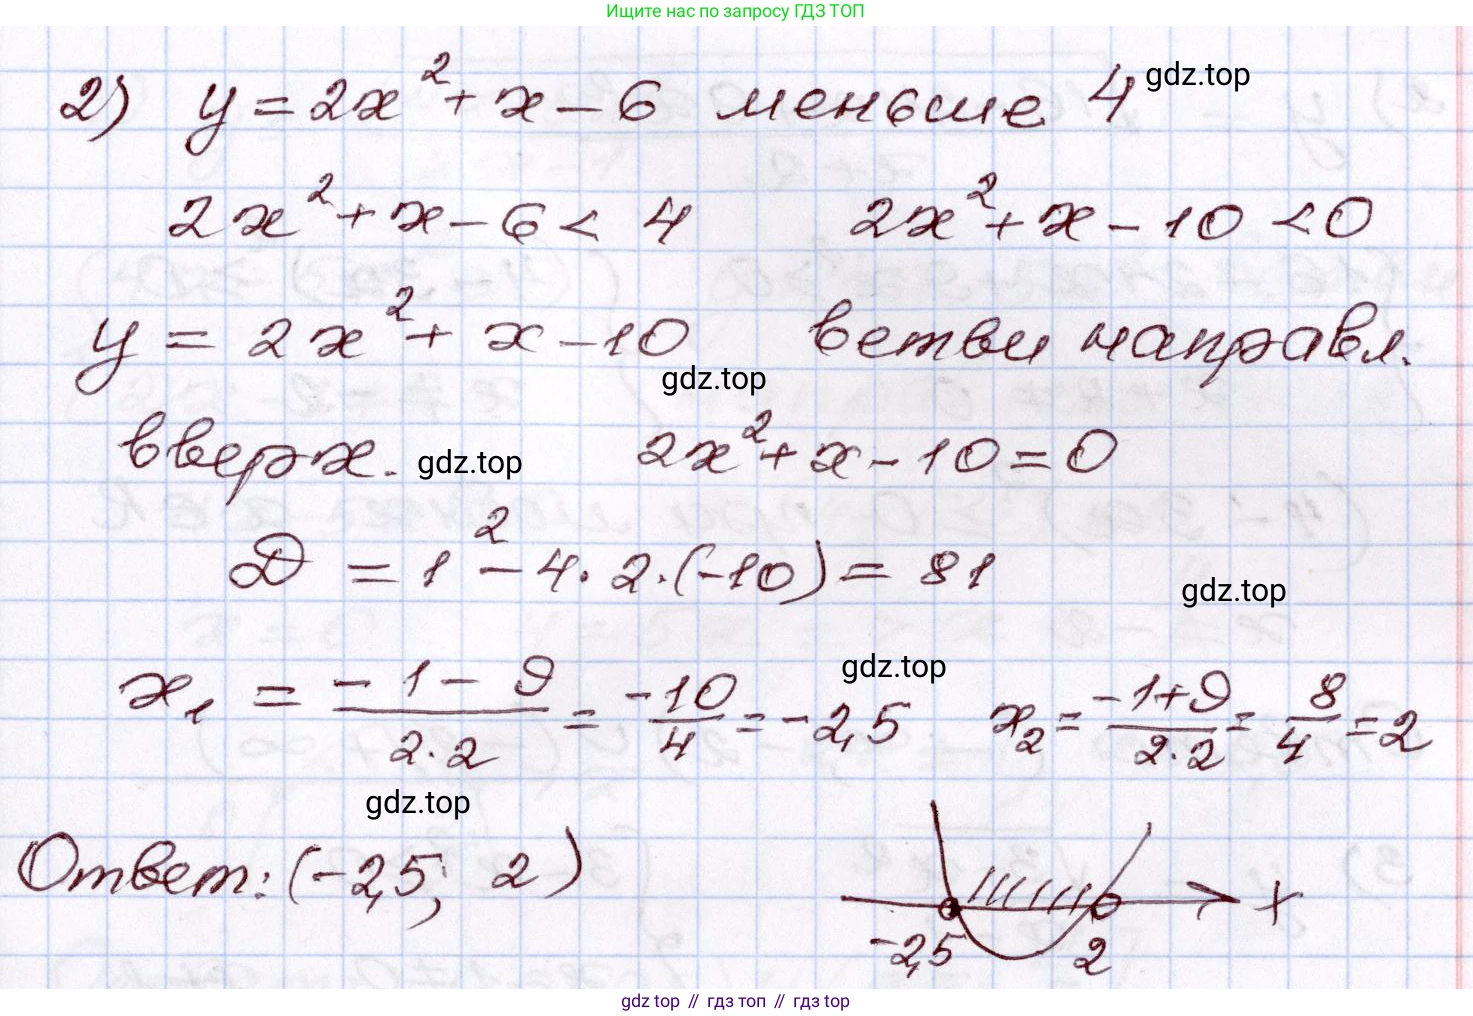 Ищите нас по запросу ГДЗ ТОП
2) y = 2x² + x - 6 меньше 4 gdz.top
2x² + x - 6 < 4 2x² + x - 10 < 0
y = 2x² + x - 10 ветви направл.
gdz.top
вверх. gdz.top 2x² + x - 10 = 0
D = 1² - 4 · 2 · (-10) = 81
gdz.top
gdz.top
x₁ = (-1 - 9)/(2·2) = -10/4 = -2,5 x₂ = (-1+9)/(2·2) = 8/4 = 2
gdz.top
Ответ: (-2,5; 2)
x
-2,5 2
gdz top // гдз топ // гдз top